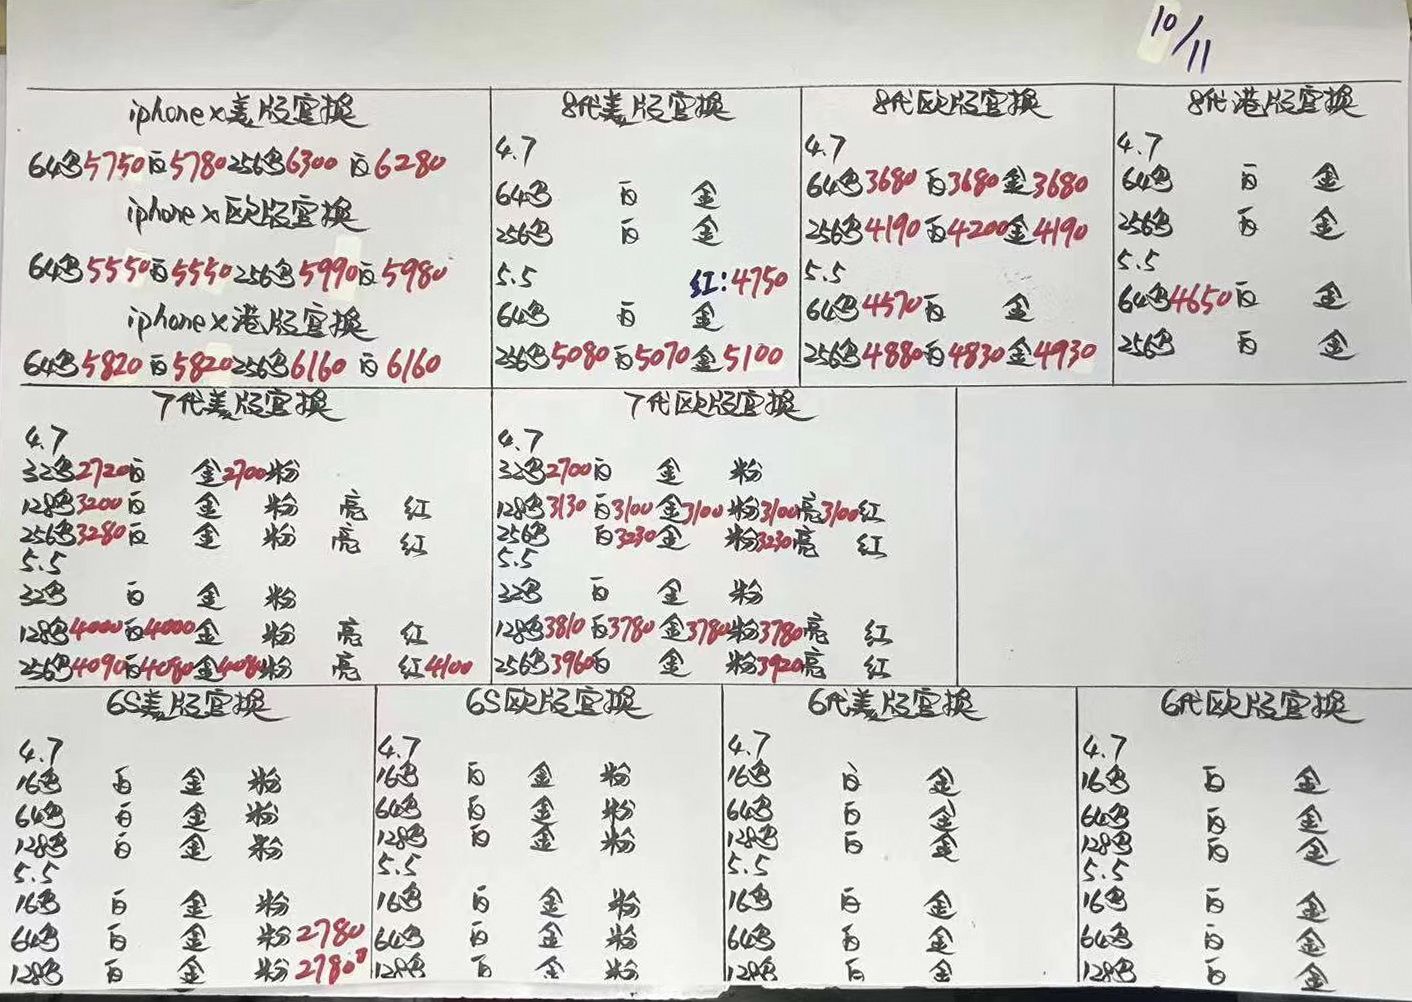 10/11
iphone x美版官换
64黑5750白5780 256黑6300 白6280
iphone x欧版官换
64黑5550白5550 256黑5990白5980
iphone x港版官换
64黑5820白5820 256黑6160 白6160
8代美版官换
4.7
64黑 白 金
256黑 白 金
5.5 红:4750
64黑 白 金
256黑5080白5070金5100
8代欧版官换
4.7
64黑3680白3680金3680
256黑4190白4200金4190
5.5
64黑4570白 金
256黑4880白4830金4930
8代港版官换
4.7
64黑 白 金
256黑 白 金
5.5
64黑4650白 金
256黑 白 金
7代美版官换
4.7
32黑2720白 金2700粉
128黑3200白 金 粉 亮 红
256黑3280白 金 粉 亮 红
5.5
32黑 白 金 粉
128黑4000白4000金 粉 亮 红
256黑4090白4080金4080粉 亮 红4100
7代欧版官换
4.7
32黑2700白 金 粉
128黑3130白3100金3100粉3100亮3100红
256黑 白3230金 粉3230亮 红
5.5
32黑 白 金 粉
128黑3810白3780金3780粉3780亮 红
256黑3960白 金 粉3920亮 红
6S美版官换
4.7
16黑 白 金 粉
64黑 白 金 粉
128黑 白 金 粉
5.5
16黑 白 金 粉
64黑 白 金 粉2780
128黑 白 金 粉2780
6S欧版官换
4.7
16黑 白 金 粉
64黑 白 金 粉
128黑 白 金 粉
5.5
16黑 白 金 粉
64黑 白 金 粉
128黑 白 金 粉
6代美版官换
4.7
16黑 白 金
64黑 白 金
128黑 白 金
5.5
16黑 白 金
64黑 白 金
128黑 白 金
6代欧版官换
4.7
16黑 白 金
64黑 白 金
128黑 白 金
5.5
16黑 白 金
64黑 白 金
128黑 白 金